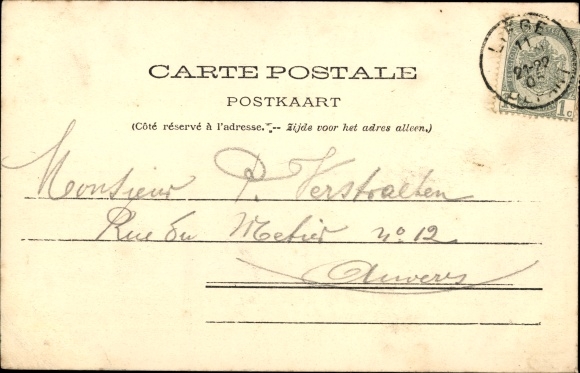 LIÈGE
11
21-22
05
1c
CARTE POSTALE
POSTKAART
(Côté réservé à l'adresse. -- Zijde voor het adres alleen.)
Monsieur P. Verstraeten
Rue du Metier no 12
Anvers